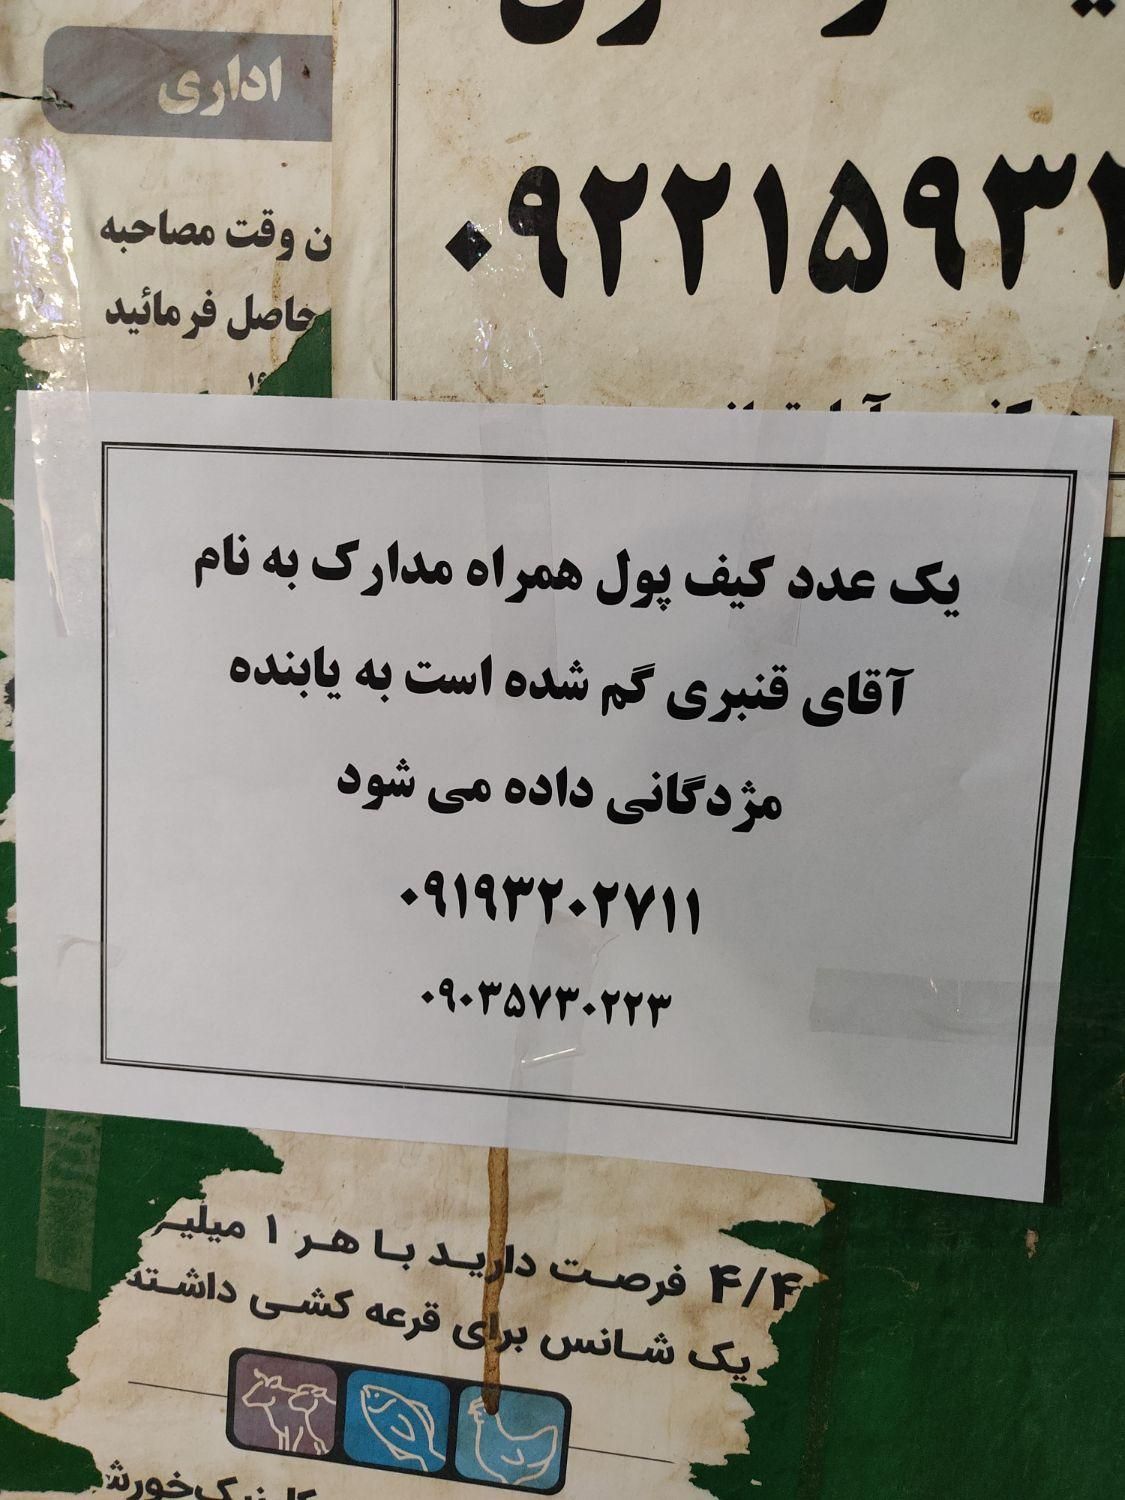 اداری
ن وقت مصاحبه
حاصل فرمائید
۰۹۲۲۱۵۹۳۲
یک عدد کیف پول همراه مدارک به نام
آقای قنبری گم شده است به یابنده
مژدگانی داده می شود
۰۹۱۹۳۲۰۲۷۱۱
۰۹۰۳۵۷۳۰۲۲۳
۴/۴ فرصت دارید با هر ۱ میلیـ
یک شانس برای قرعه کشی داشته